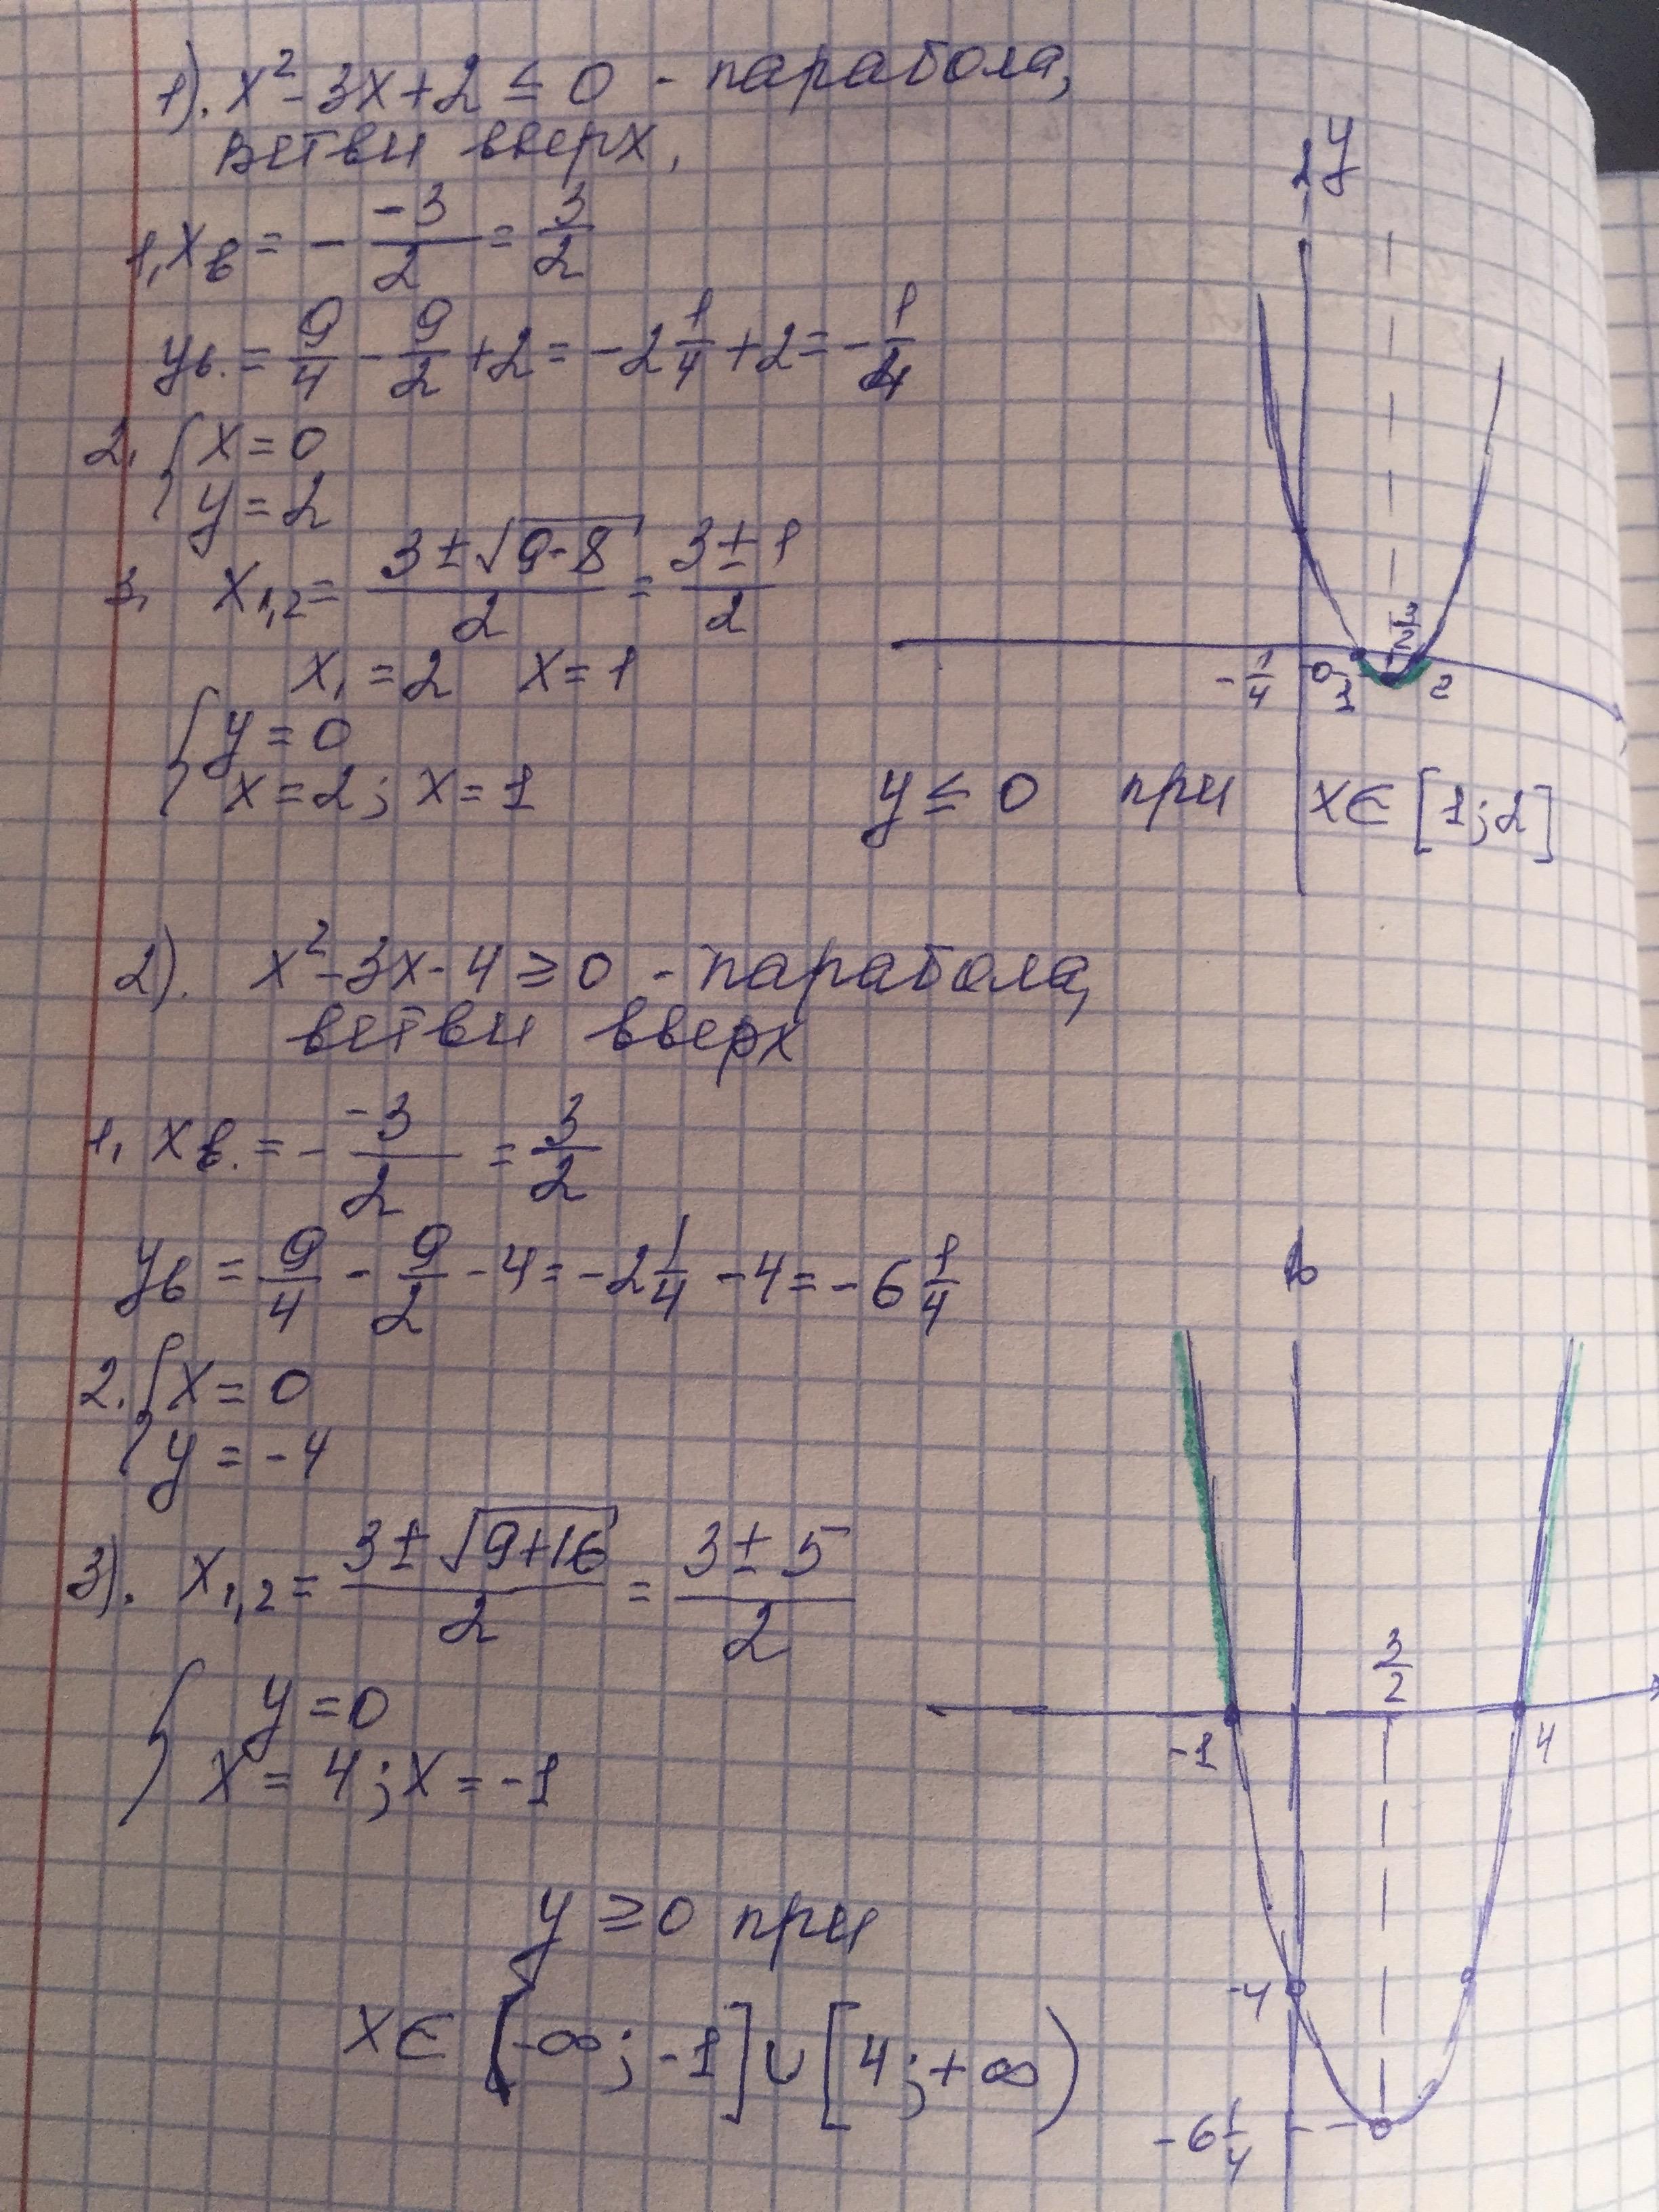 1). x² - 3x + 2 ≤ 0 - парабола,
ветви вверх,
1, xв = - -3/2 = 3/2
yв. = 9/4 - 9/2 + 2 = -2 1/4 + 2 = - 1/4
2, { x = 0
y = 2
3, x1,2 = (3 ± √(9-8))/2 = (3 ± 1)/2
x1 = 2 x = 1
{ y = 0
x = 2; x = 1
y
3/2
- 1/4 0 1 2
y ≤ 0 при x ∈ [1; 2]
2). x² - 3x - 4 ≥ 0 - парабола,
ветви вверх
1, xв. = - -3/2 = 3/2
yв = 9/4 - 9/2 - 4 = -2 1/4 - 4 = -6 1/4
2. { x = 0
y = -4
3). x1,2 = (3 ± √(9+16))/2 = (3 ± 5)/2
{ y = 0
x = 4; x = -1
3/2
-1 4
-4
-6 1/4
y ≥ 0 при
x ∈ (-∞; -1] ∪ [4; +∞)